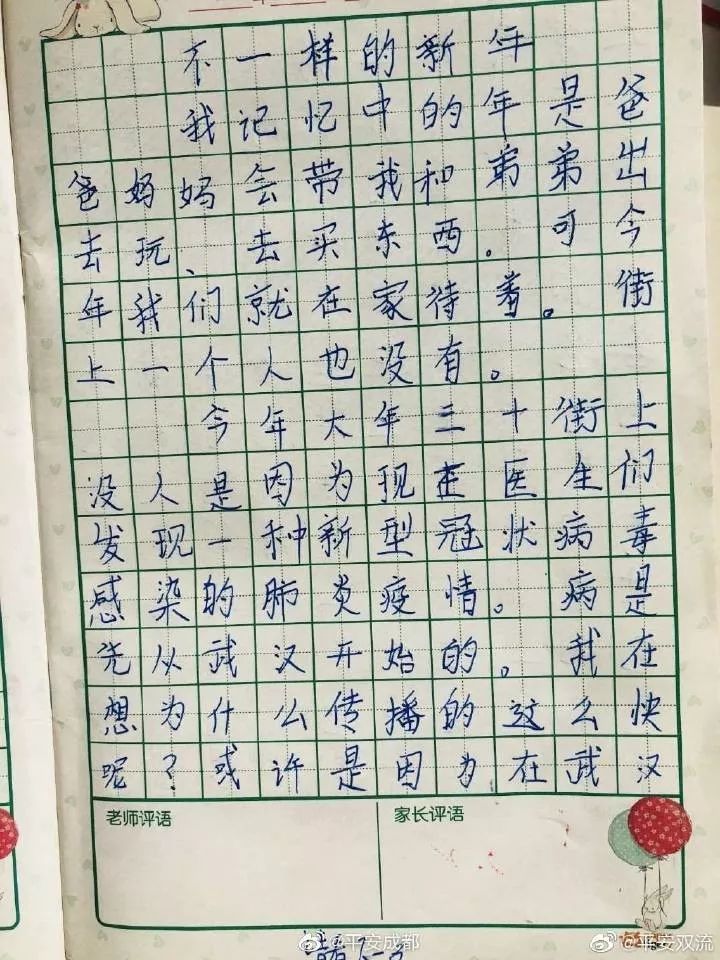 不一样的新年
我记忆中的年是爸
爸妈妈会带我和弟弟出
去玩、去买东西。可今
年我们就在家待着。街
上一个人也没有。
今年大年三十街上
没人是因为现在医生们
发现一种新型冠状病毒
感染的肺炎疫情。病是
先从武汉开始的。我在
想为什么传播的这么快
呢?或许是因为在武汉
老师评语
家长评语
@平安成都
@平安双流